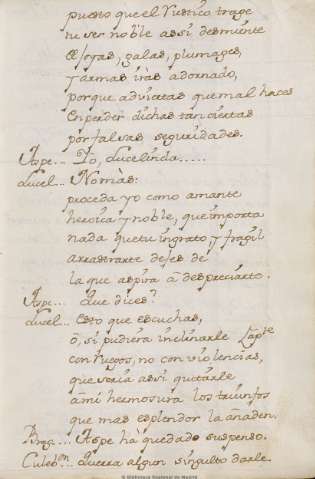 puesto que el Rustico trage
tu ser noble assi desmiente
de joyas, galas, plumages,
y armas iràs adornado,
porque adviertas que mal haces
en perder dichas tan ciertas
por falsas seguridades.
Aspe... Yo, Lucelinda.....
Lucel... No mas:
proceda yo como amante
heroica y noble, que importa
nada que tu ingrato, y fragil
arrastrarte dejes de
la que aspira à despreciarte.
Aspe... Que dices?
Lucel... Esto que escuchas,
ò, si pudiera inclinarle Apte
con ruegos, no con violencias,
que seria assi quitarle
à mi hermosura los triunfos
que mas esplendor la añaden.
Aspe hà quedado suspenso.
Culebn... Querrà algun singulto darle.
© Biblioteca Nacional de España